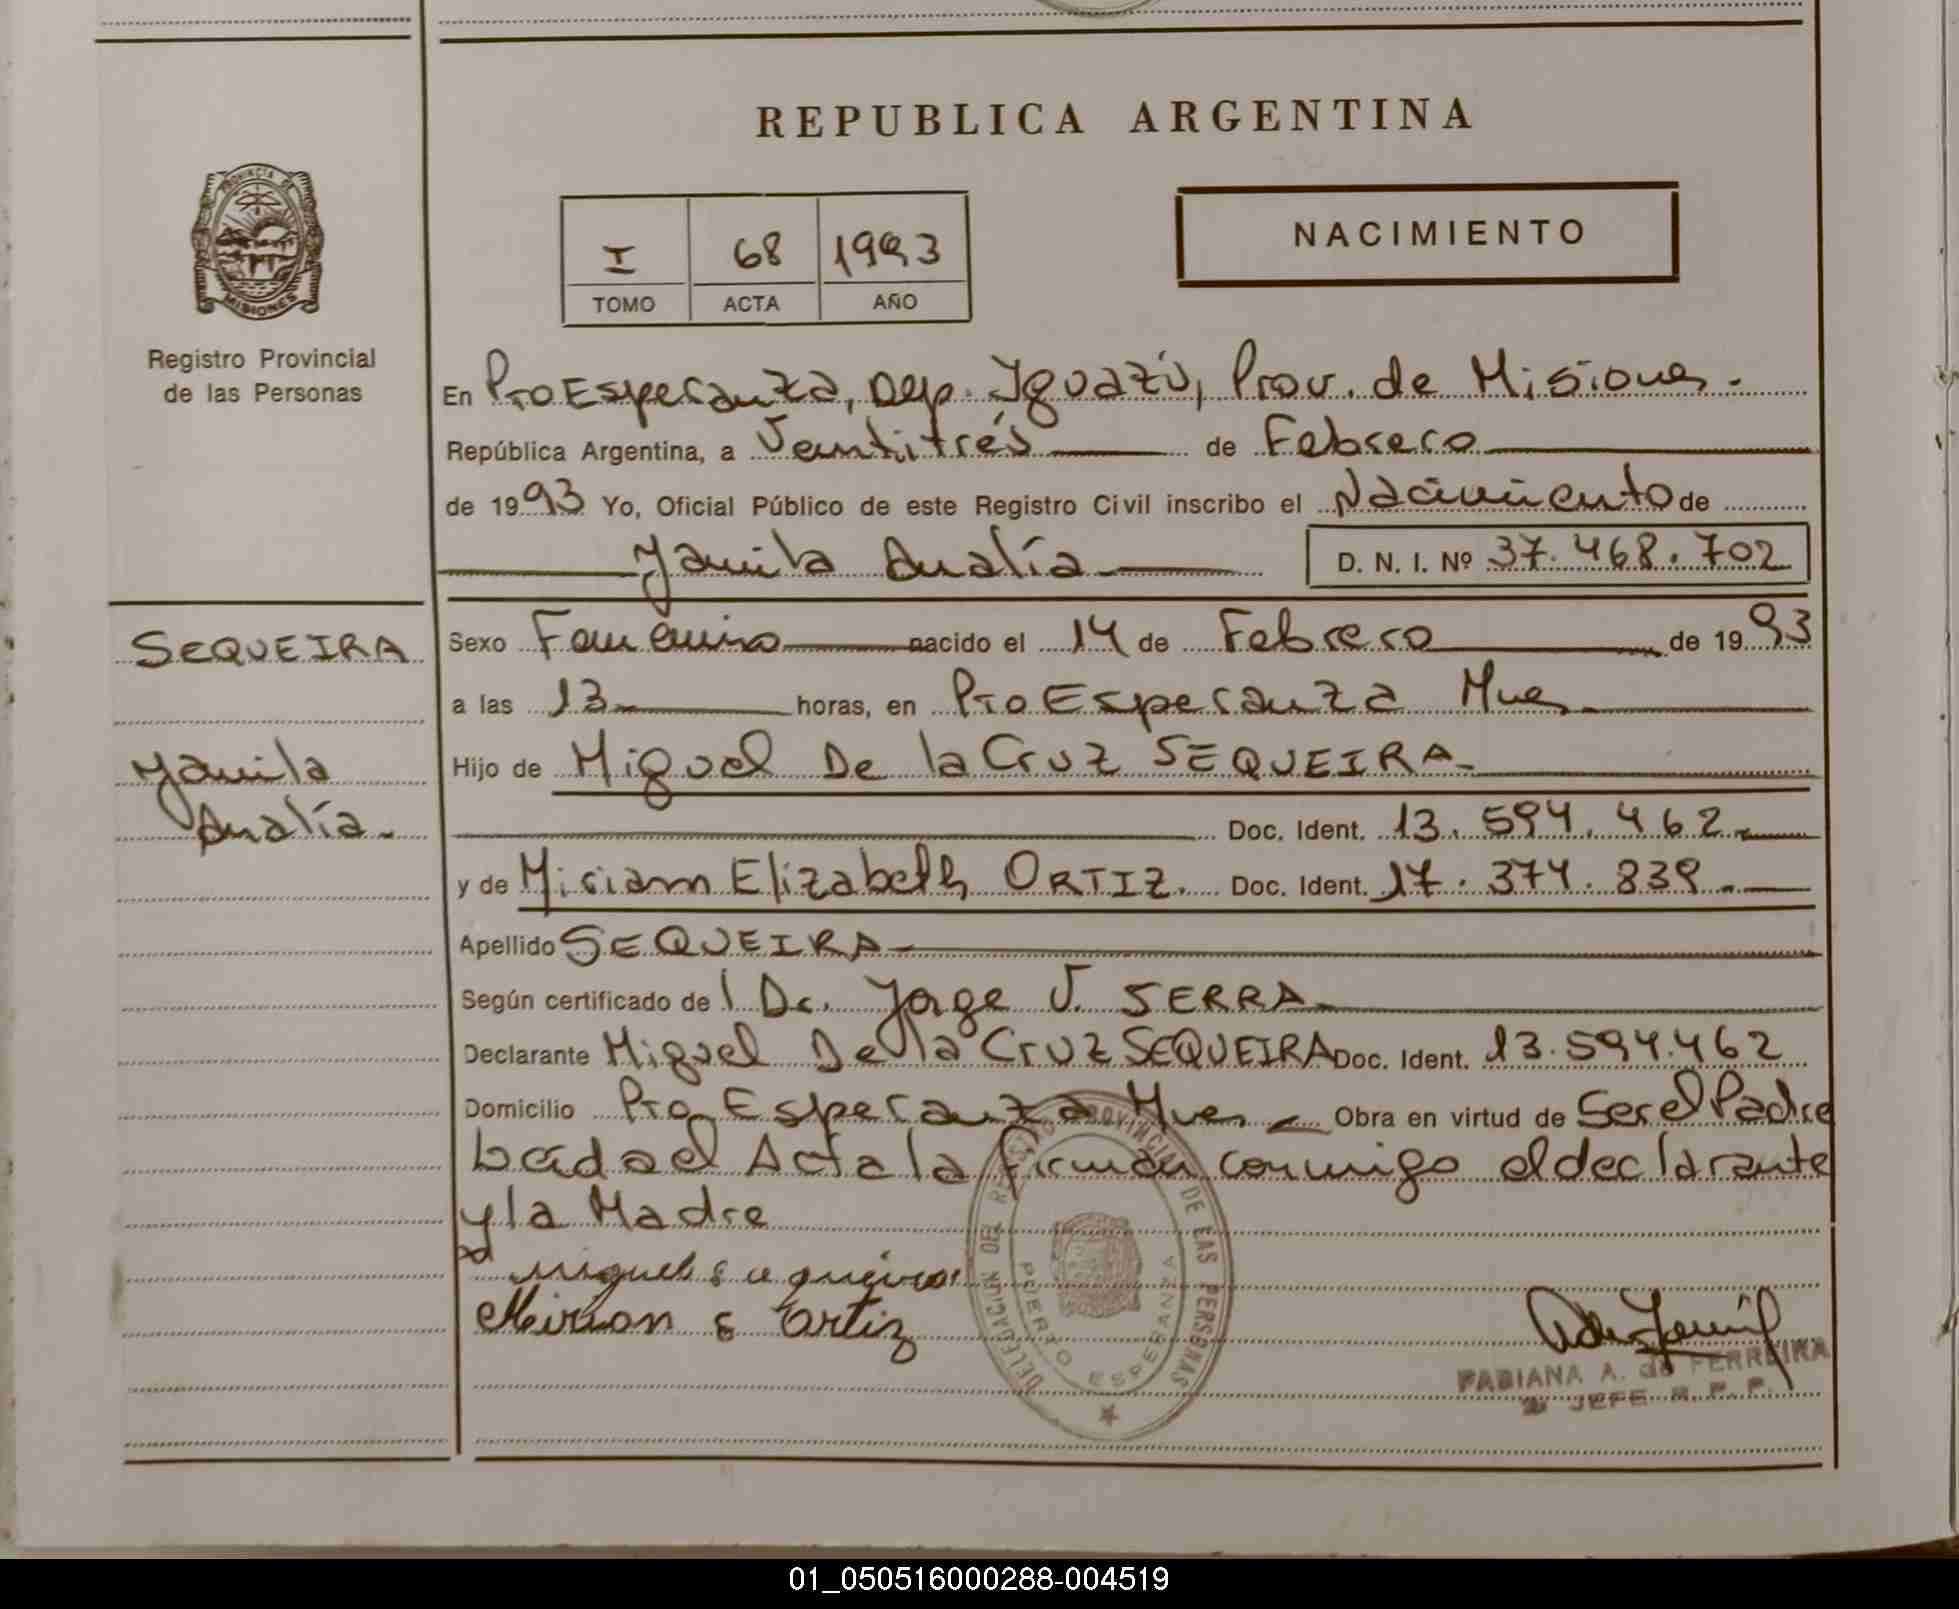 REPUBLICA ARGENTINA
PROVINCIA DE
MISIONES
Registro Provincial
de las Personas
I 68 1993
TOMO ACTA AÑO
NACIMIENTO
En Pto Esperanza, Dep. Iguazú, Prov. de Misiones.
República Argentina, a Veintitrés de Febrero
de 1993 Yo, Oficial Público de este Registro Civil inscribo el Nacimiento de
Yamila Analía D. N. I. Nº 37.468.702
SEQUEIRA
Yamila
Analía.
Sexo Femenino nacido el 14 de Febrero de 1993
a las 13 horas, en Pto Esperanza Mnes
Hijo de Miguel De la Cruz SEQUEIRA
Doc. Ident. 13.594.462
y de Miriam Elizabeth ORTIZ. Doc. Ident. 17.374.839
Apellido SEQUEIRA
Según certificado de l Dr. Jorge V. SERRA
Declarante Miguel De la Cruz SEQUEIRA Doc. Ident. 13.594.462
Domicilio Pto Esperanza Mnes Obra en virtud de Ser el Padre
Leída el Acta la firman conmigo el declarante
y la Madre
miguel sequeira
Mirian E Ortiz
DELEGACION DEL REGISTRO PROVINCIAL DE LAS PERSONAS
PUERTO ESPERANZA
FABIANA A. de FERREIRA
JEFE R. P. P.
01_050516000288-004519